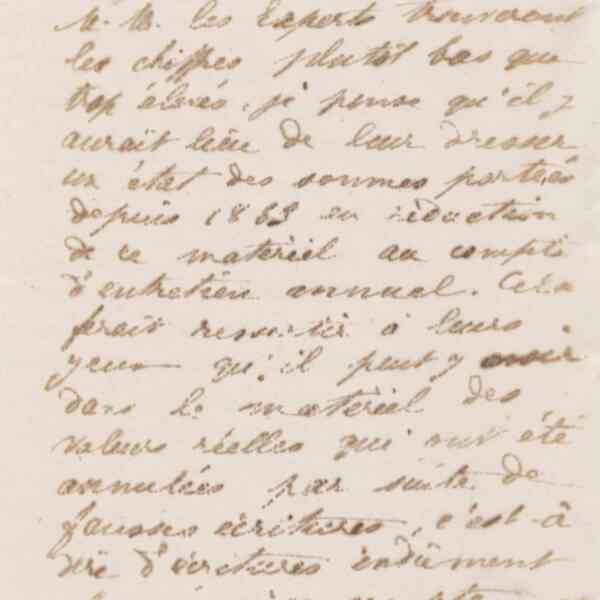 M. M. les Experts trouveront
les chiffres plutôt bas que
trop élevés, je pense qu'il y
aurait lieu de leur dresser
un état des sommes portées
depuis 1863 en réduction
de ce matériel au compte
d'entretien annuel. Cela
ferait ressortir à leurs
yeux qu'il peut y avoir
dans le matériel des
valeurs réelles qui ont été
annulées par suite de
fausses écritures, c'est-à
dire d'écritures indûment